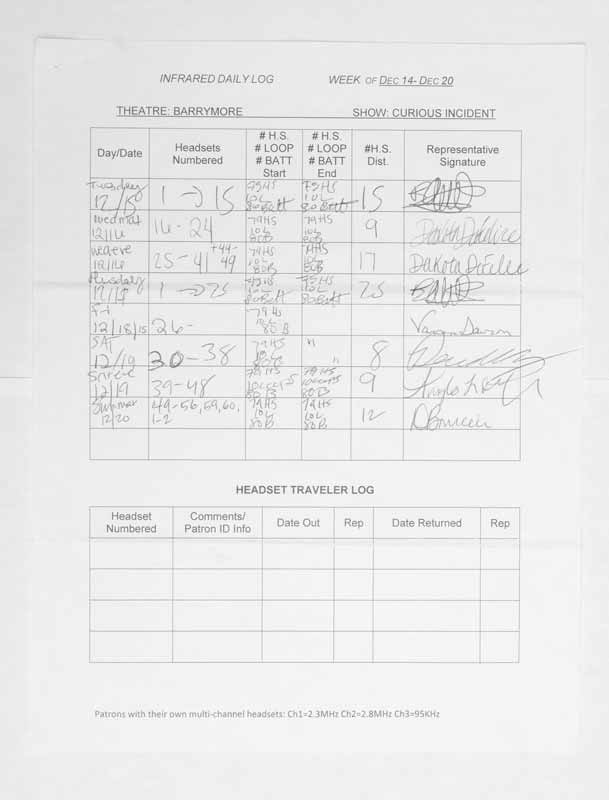 INFRARED DAILY LOG WEEK OF DEC 14- DEC 20
THEATRE: BARRYMORE SHOW: CURIOUS INCIDENT
Day/Date Headsets Numbered # H.S. # LOOP # BATT Start # H.S. # LOOP # BATT End #H.S. Dist. Representative Signature
Tuesday 12/15 1 → 15 79HS 10L 80Batt 79HS 10L 80Batt 15
wedmat 12/16 16-24 79HS 10L 80B 79HS 10L 80B 9
12/16 25-41 +44-49 79HS 10L 80B 79HS 10L 80B 17
1 → 25 10L 80Batt 79HS 10L 80Batt 25
Fri 12/18/15 26- 79HS 10L 80B
SAT 12/19 30-38 79HS 10L 80B " " 8
12/19 39-48 79HS 80B 79HS 80B 9
12/20 49-56, 59, 60, 1-2 79HS 10L 80B 79HS 10L 80B 12
HEADSET TRAVELER LOG
Headset Numbered Comments/ Patron ID Info Date Out Rep Date Returned Rep
Patrons with their own multi-channel headsets: Ch1=2.3MHz Ch2=2.8MHz Ch3=95KHz